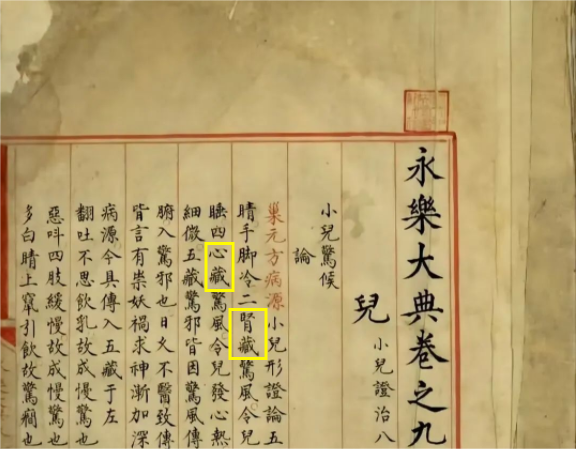 永樂大典卷之九
兒 小兒證治八
小兒驚候
論
巢元方病源小兒形證論五
睛手脚冷二腎藏驚風令兒
睡四心藏驚風令兒發心熱
細微五藏驚邪皆因驚風傳
腑入驚邪也日久不醫致傳
皆言有祟妖禍求神漸加深
病源今具傳入五藏于左
翻吐不思飲乳故成慢驚也
惡呌四肢緩慢故成慢驚也
多白睛上竄引飲故驚癇也